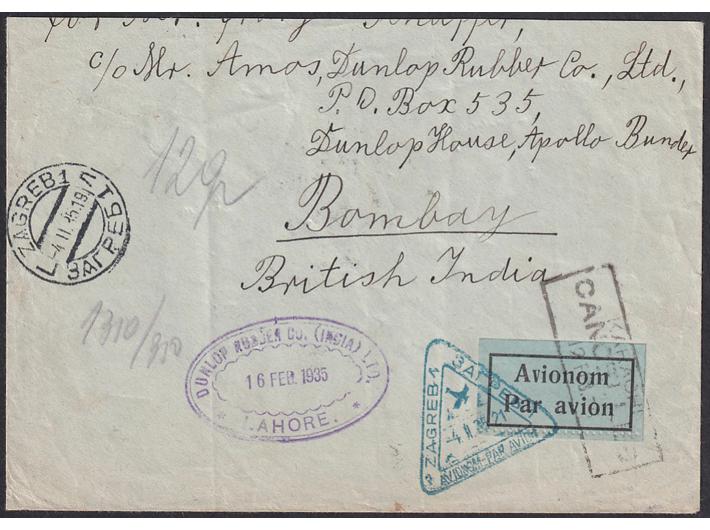 c/o Mr. Amos, Dunlop Rubber Co., Ltd.,
P.O. Box 535,
Dunlop House, Apollo Bunder
Bombay
British India
ZAGREB 1
-4 II 35.19
ЗАГРЕБ 1
DUNLOP RUBBER CO. (INDIA) LTD.
16 FEB. 1935
* LAHORE. *
ZAGREB 1
-4 II 35.21
AVIONOM-PAR AVION
Avionom
Par avion